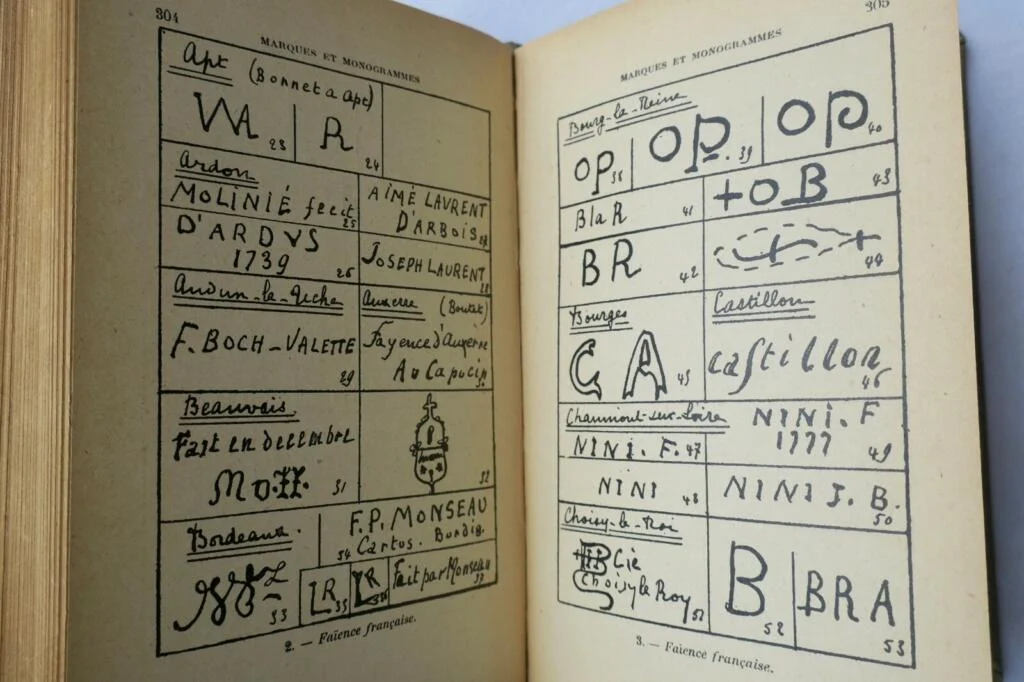 304
MARQUES ET MONOGRAMMES
Apt (Bonnet a Apt)
23
R 24
Ardon
MOLINIÉ fecit 25
AIMÉ LAVRENT
D'ARBOIS
D'ARDVS
1739 26
JOSEPH LAURENT 28
Audun-le-Tiche
F. BOCH-VALETTE 29
Auxerre (Boutet)
Fayence d'Auxerre
Au Capucin
Beauvais
Fait en decembre
31
32
Bordeaux.
33
F.P. MONSEAU
34 Cartus. Burdig.
LR 35
LR
Fait par Monseau 37
2. — Faïence française.
305
MARQUES ET MONOGRAMMES
Bourg-la-Reine
OP 38
OP. 39
OP 40
BlaR 41
+OB 43
BR 42
44
Bourges
C A 45
Castillon
castillon 46
Chaumont-sur-Loire
NINI. F. 47
NINI. F
1777 49
NINI 48
NINI J. B. 50
Choisy-le-Roi
HB Cie
Choisy le Roy 51
B 52
BRA 53
3. — Faïence française.